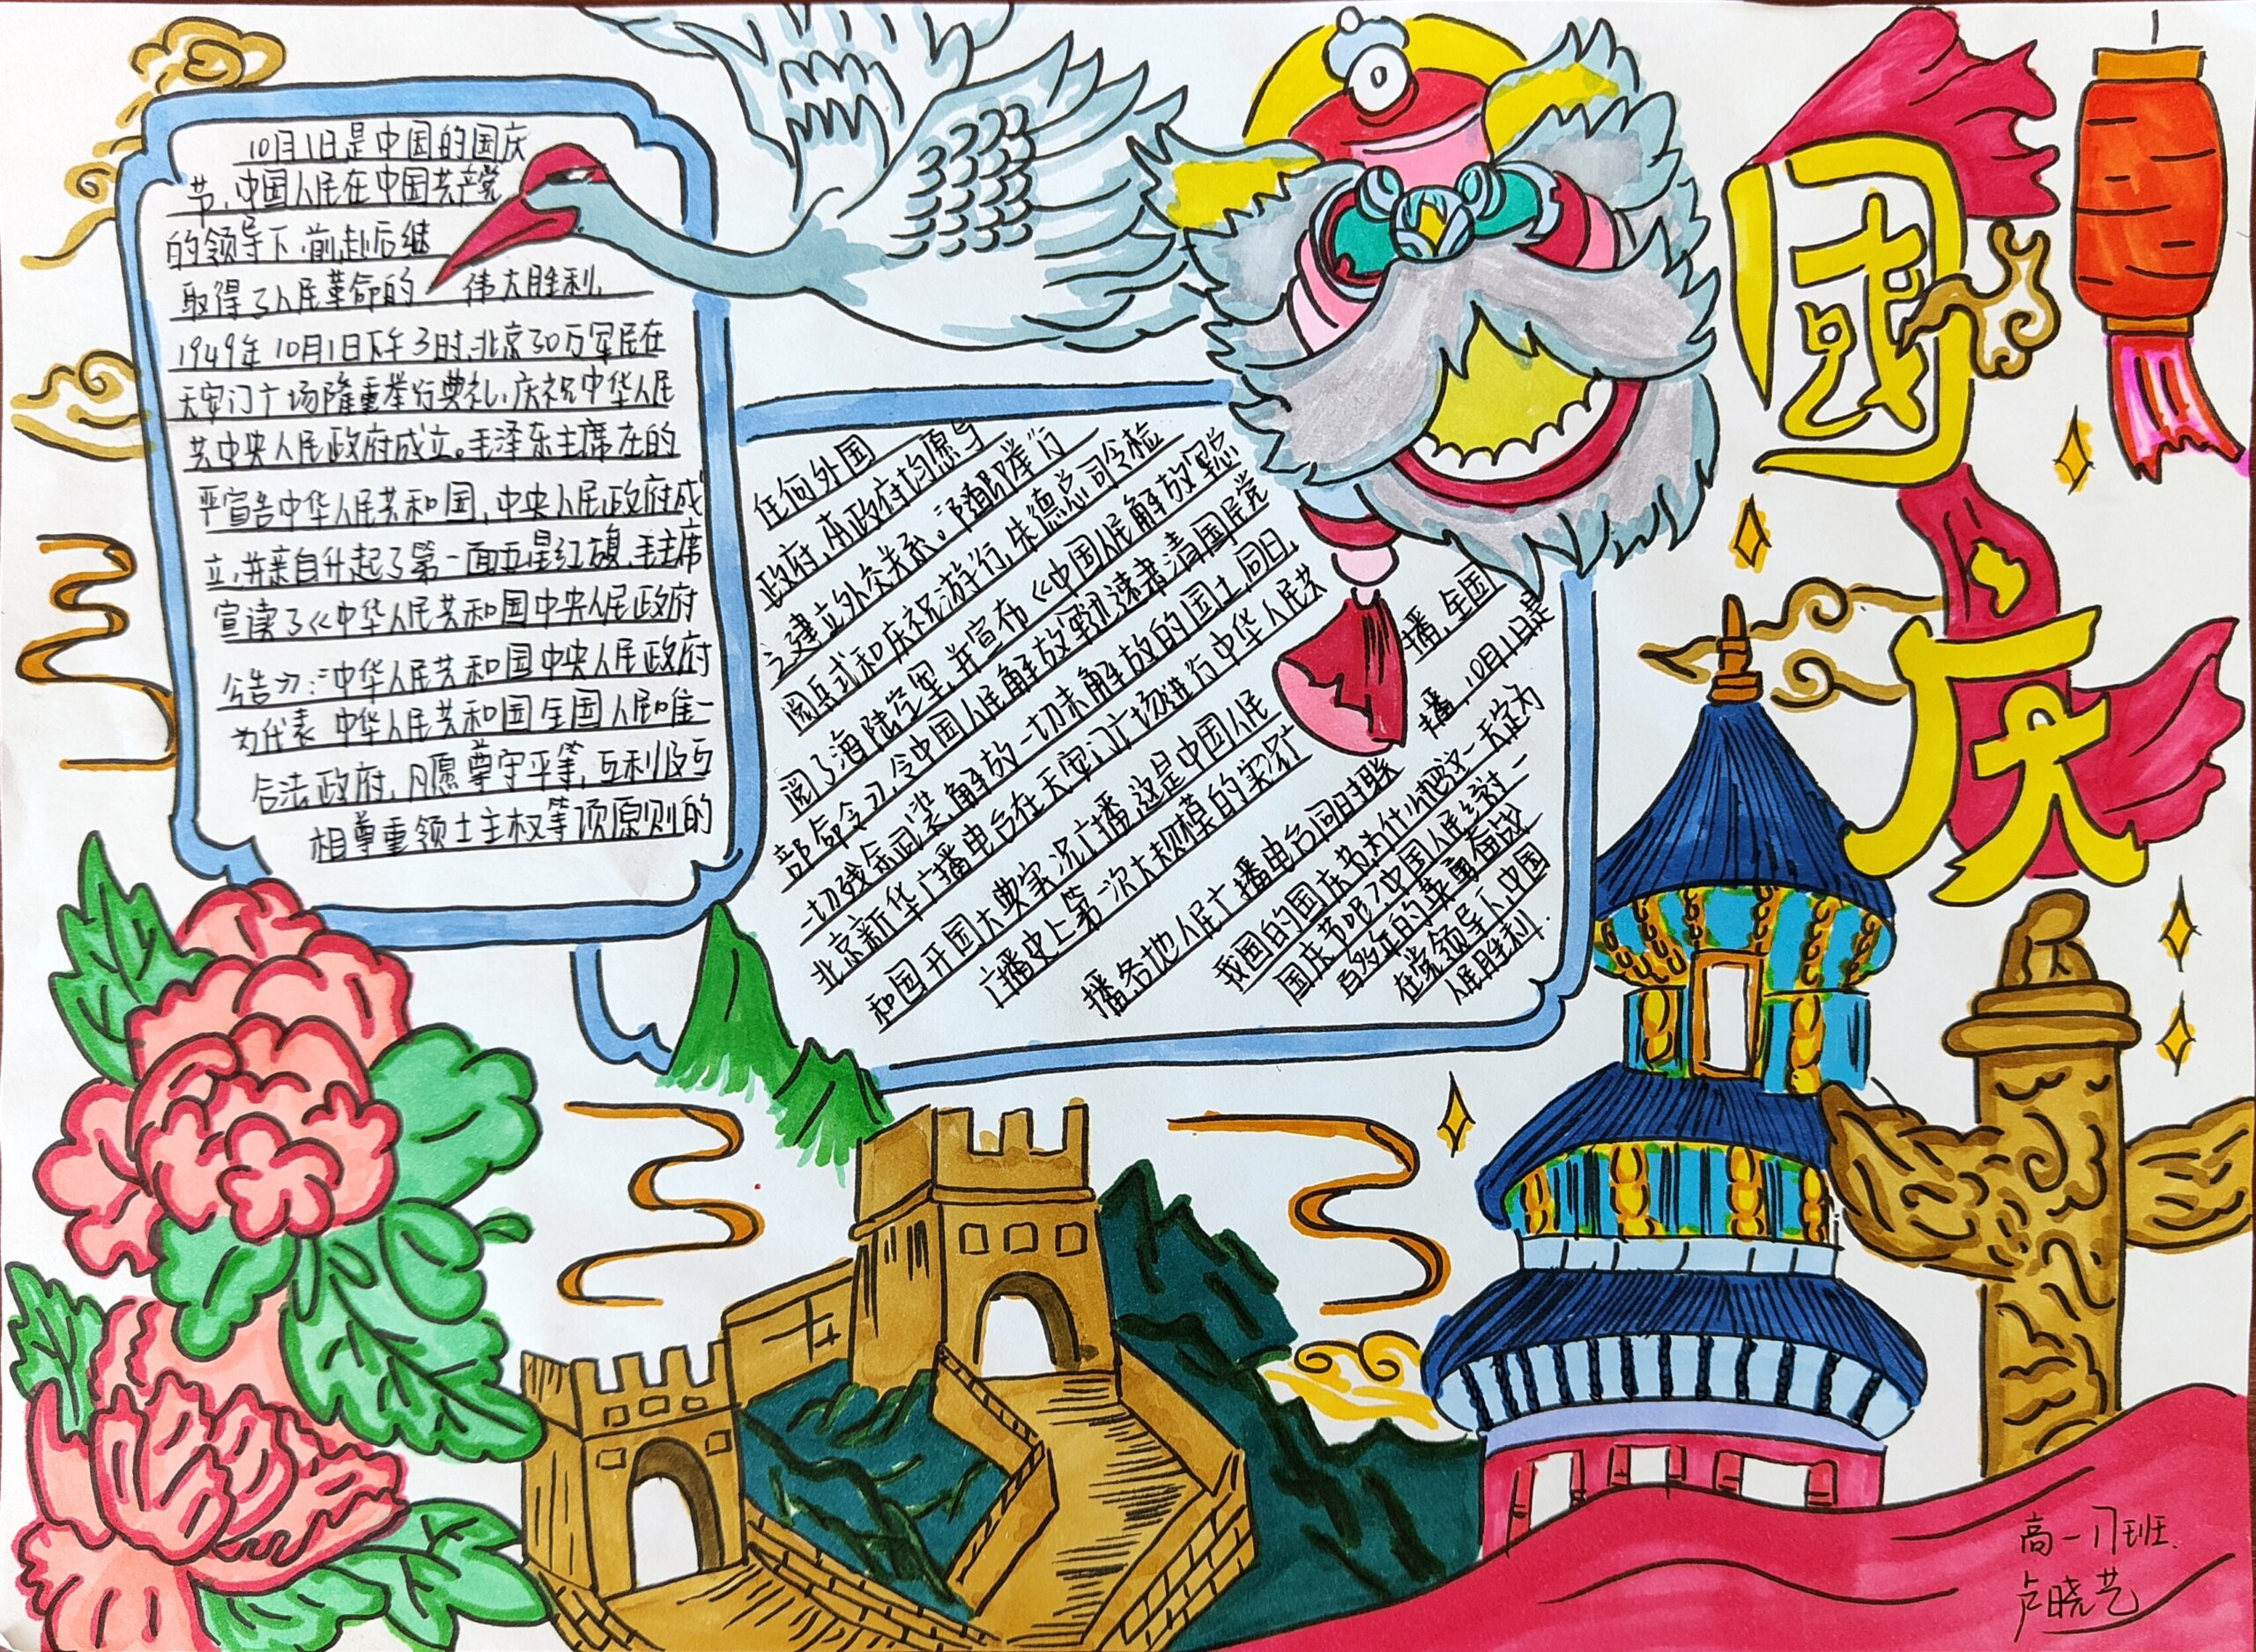 10月1日是中国的国庆
节,中国人民在中国共产党
的领导下,前赴后继
取得了人民革命的 伟大胜利,
1949年10月1日下午3时,北京30万军民在
天安门广场隆重举行典礼,庆祝中华人民
共中央人民政府成立。毛泽东主席在的
严宣告中华人民共和国,中央人民政府成
立,并亲自升起了第一面五星红旗,毛主席
宣读了《中华人民共和国中央人民政府
公告为:中华人民共和国中央人民政府
为代表 中华人民共和国全国人民唯一
合法政府,愿尊守平等,互利及互
相尊重领土主权等项原则的
任何外国
政府,本政府均愿与
之建立外交关系。随即举行
阅兵式和庆祝游行,朱德总司令检
阅了海陆空军,并宣布《中国人民解放军总
部命令》,令中国人民解放军迅速肃清国民党
一切残余武装,解放一切未解放的国土,同日,
北京新华广播电台在天安门广场进行中华人民共
和国开国大典实况广播,这是中国人民
广播史上第一次大规模的实况广
播,全国
播各地人民广播电台同时联
播,10月1日是
我国的国庆节为什么把这一天定为
国庆节呢?中国人民经过一
百多年的英勇奋战
在党领导下,中国
人民胜利.
國
庆
高一17班.
卢晓艺